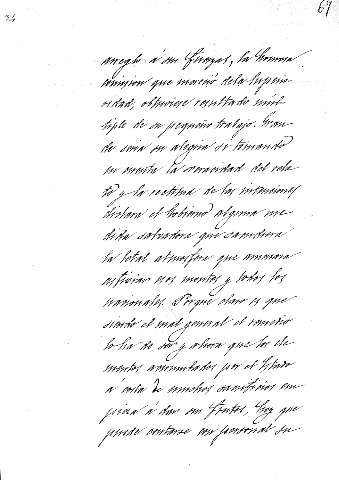 34
67
arreglo á sus fuerzas, la honrosa
comision que mereció dela Superio-
ridad, obtuviese resultado múl-
tiple de su pequeño trabajo. Gran-
de seria su alegria si tomando
en cuenta la veracidad del rela-
to y la rectitud de las intenciones
dictara el Gobierno alguna me-
dida salvadora que cambiara
la fatal atmosfera que amenaza
asfixiar esos montes y todos los
nacionales. Porque claro es que
siendo el mal general el remedio
lo ha de ser y ahora que los ele-
mentos acumulados por el Estado
á costa de muchos sacrificios em-
pieza á dar sus frutos, hoy que
puede contarse con personal su-